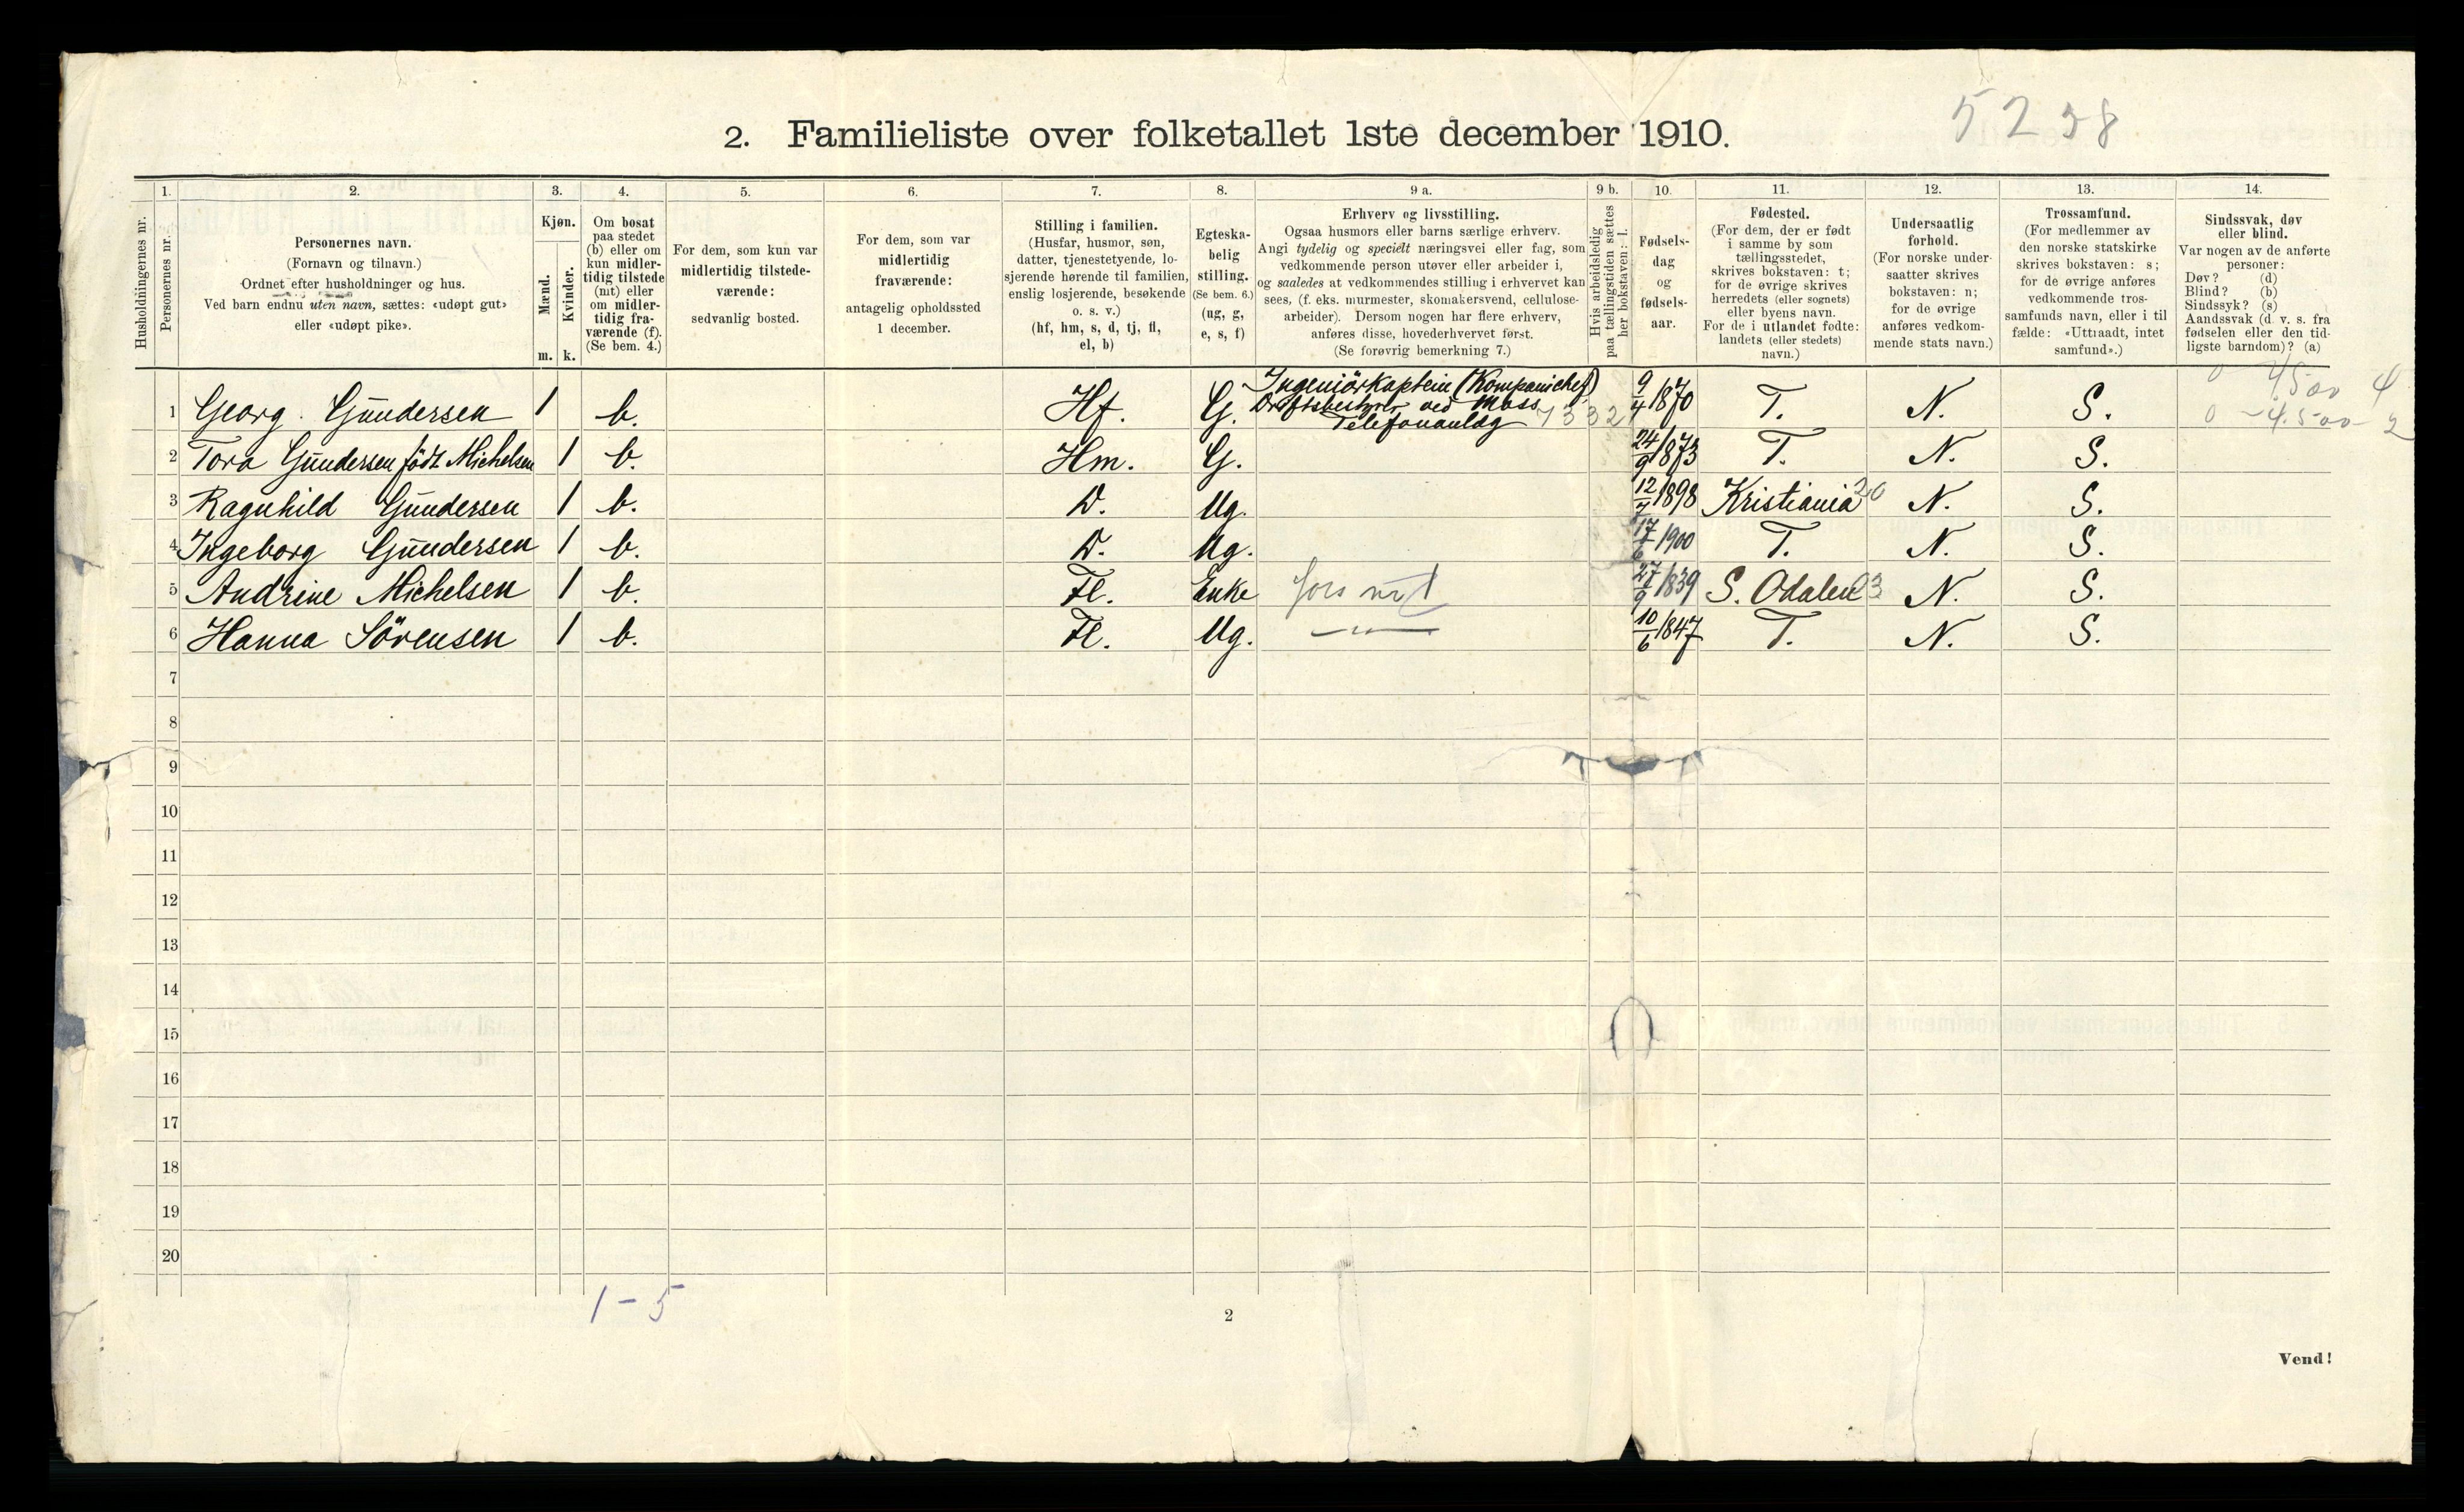 5238
2. Familieliste over folketallet 1ste december 1910.
Husholdningernes nr.
1.
Personernes nr.
2.
Personernes navn.
(Fornavn og tilnavn.)
Ordnet efter husholdninger og hus.
Ved barn endnu uten navn, sættes: «udøpt gut»
eller «udøpt pike».
3.
Kjøn.
Mænd.
Kvinder.
m. k.
4.
Om bosat
paa stedet
(b) eller om
kun midler-
tidig tilstede
(mt) eller
om midler-
tidig fra-
værende (f).
(Se bem. 4.)
5.
For dem, som kun var
midlertidig tilstede-
værende:
sedvanlig bosted.
6.
For dem, som var
midlertidig
fraværende:
antagelig opholdssted
1 december.
7.
Stilling i familien.
(Husfar, husmor, søn,
datter, tjenestetyende, lo-
sjerende hørende til familien,
enslig losjerende, besøkende
o. s. v.)
(hf, hm, s, d, tj, fl,
el, b)
8.
Egteska-
belig
stilling.
(Se bem. 6.)
(ug, g,
e, s, f)
9 a.
Erhverv og livsstilling.
Ogsaa husmors eller barns særlige erhverv.
Angi tydelig og specielt næringsvei eller fag, som
vedkommende person utøver eller arbeider i,
og saaledes at vedkommendes stilling i erhvervet kan
sees, (f. eks. murmester, skomakersvend, cellulose-
arbeider). Dersom nogen har flere erhverv,
anføres disse, hovederhvervet først.
(Se forøvrig bemerkning 7.)
9 b.
Hvis arbeidsledig
paa tællingstiden sættes
her bokstaven: l.
10.
Fødsels-
dag
og
fødsels-
aar.
11.
Fødested.
(For dem, der er født
i samme by som
tællingsstedet,
skrives bokstaven: t;
for de øvrige skrives
herredets (eller sognets)
eller byens navn.
For de i utlandet fødte:
landets (eller stedets)
navn.)
12.
Undersaatlig
forhold.
(For norske under-
saatter skrives
bokstaven: n;
for de øvrige
anføres vedkom-
mende stats navn.)
13.
Trossamfund.
(For medlemmer av
den norske statskirke
skrives bokstaven: s;
for de øvrige anføres
vedkommende tros-
samfunds navn, eller i til
fælde: «Uttraadt, intet
samfund».)
14.
Sindssvak, døv
eller blind.
Var nogen av de anførte
personer:
Døv? (d)
Blind? (b)
Sindssyk? (s)
Aandssvak (d. v. s. fra
fødselen eller den tid-
ligste barndom)? (a)
0 4500 4
0 - 4.500 - 2
1 Georg. Gundersen 1 b. Hf. G. Ingeniörkaptein (Kompanichef) Driftsbestyrer ved Moss Telefonanlæg 7332 9/4 1870 T. N. S.
2 Tora Gundersen födt Michelsen 1 b. Hm. G. 24/9 1873 T. N. S.
3 Ragnhild Gundersen 1 b. D. Ug. 12/7 1898 Kristiania 20 N. S.
4 Ingeborg Gundersen 1 b. D. Ug. 17/6 1900 T. N. S.
5 Andrine Michelsen 1 b. Fl. Enke 27/9 1839 S. Odalen 03 N. S.
6 Hanna Sörensen 1 b. Fl. Ug. —„— 10/6 1847 T. N. S.
7
8
9
10
11
12
13
14
15
16
17
18
19
20
1 - 5
2
Vend!